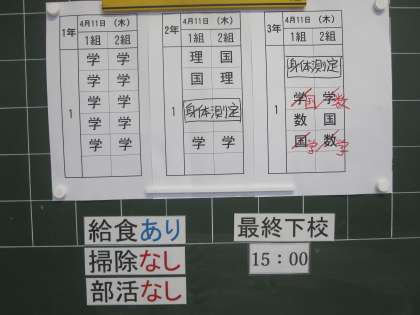 1年 4月11日 (木)
1組 2組
学 学
学 学
1 学 学
学 学
学 学
2年 4月11日 (木)
1組 2組
理 国
国 理
1 身体測定
学 学
3年 4月11日 (木)
1組 2組
身体測定
1 学国 学数
数 国
国学 数学
給食あり
掃除なし
部活なし
最終下校
15:00